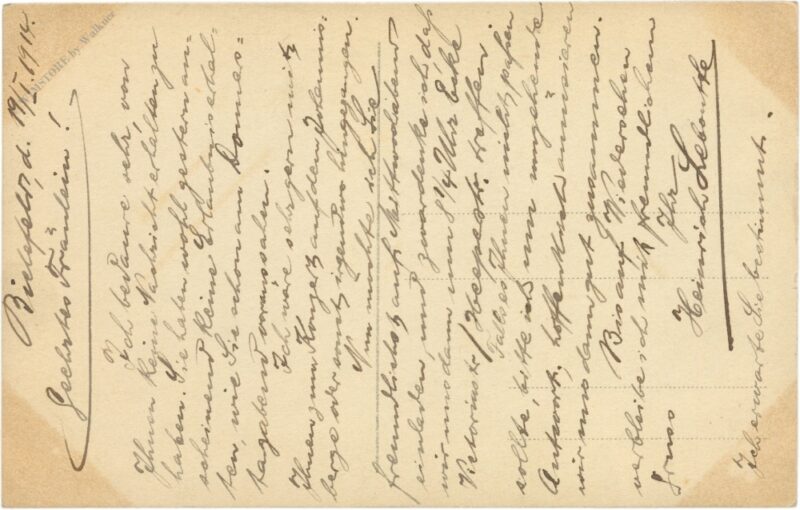 Bielefeld, d. 19/I. 1914.
Geehrtes Fräulein!
Ich bedaure sehr, von
Ihnen keine Nachricht erhalten zu
haben. Sie haben wohl gestern an-
scheinend keine Erlaubnis erhal-
ten, wie Sie schon am Donners-
tagabend voraussahen.
Ich wäre sehr gern mit
Ihnen zum Konzert auf den Johannis-
berge oder sonst irgendwo hingegangen.
Nun möchte ich Sie
freundlichst auf Mittwochabend
einladen, und zwar denke ich, daß
wir uns dann um 8 1/4 Uhr Ecke
Victoriastr./Heeperstr. treffen.
Falls es Ihnen nicht passen
sollte, bitte ich um umgehende
Antwort; hoffentlich amüsieren
wir uns dann gut zusammen.
Bis auf Wiedersehen
verbleibe ich mit freundlichem
Gruss
Ihr
Heinrich
Ich erwarte Sie bestimmt.
STORE by Walkuer